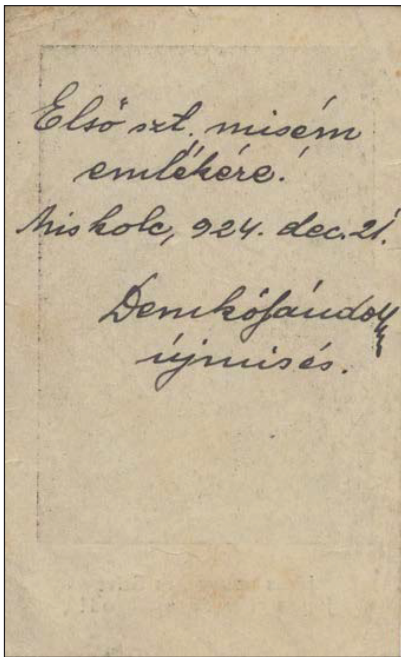 Első szt. misém
emlékére!
Miskolc, 924. dec. 21.
Demkó Sándor
újmisés.